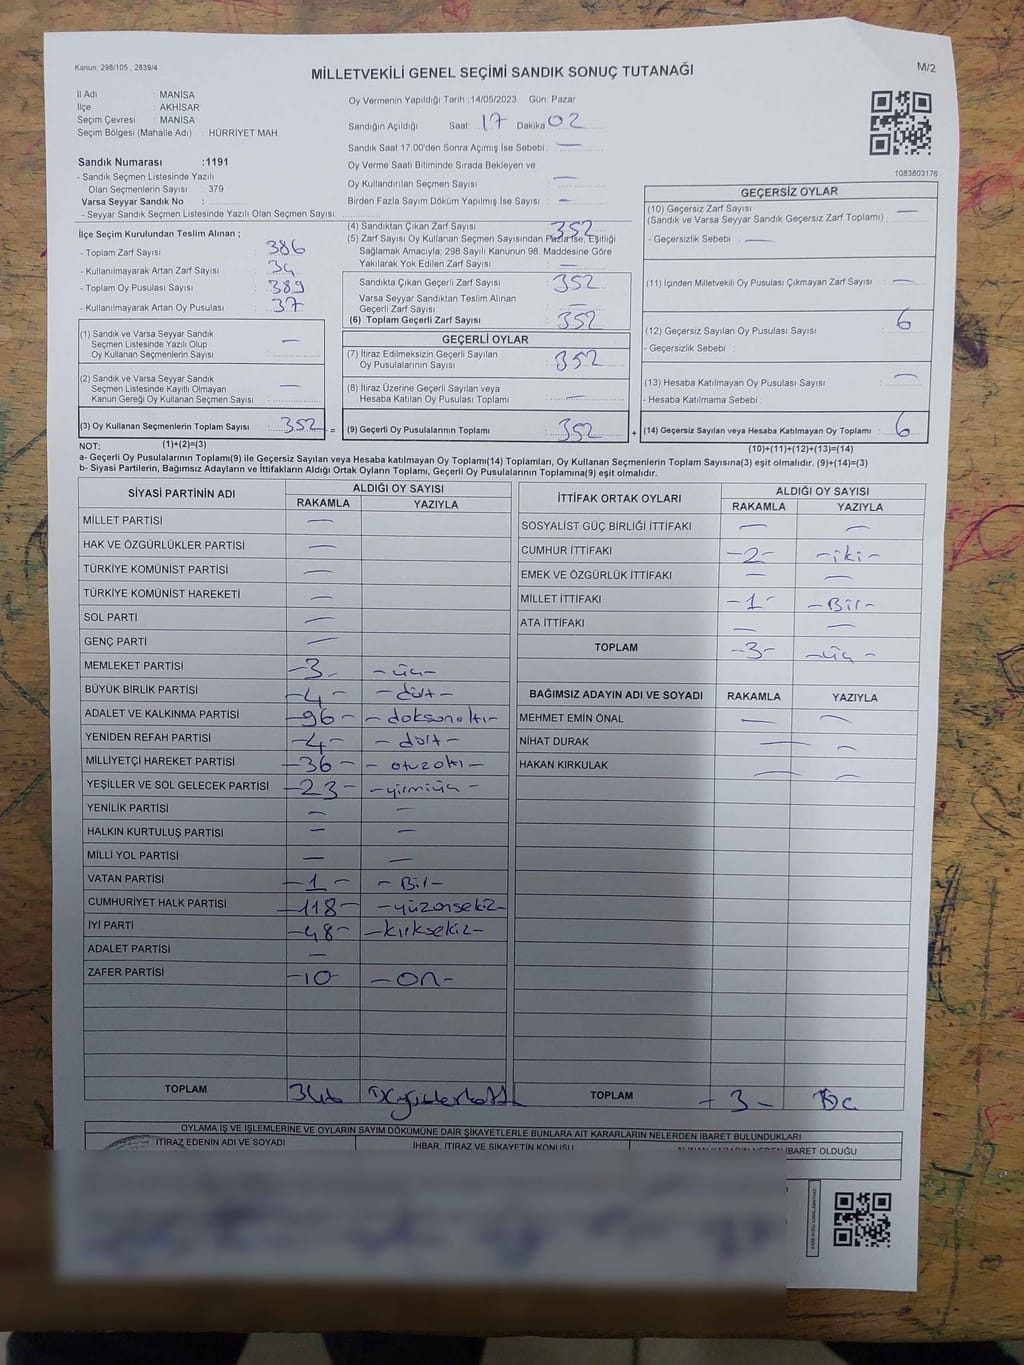 Kanun: 298/105 , 2839/4
MİLLETVEKİLİ GENEL SEÇİMİ SANDIK SONUÇ TUTANAĞI
M/2
İl Adı : MANİSA
İlçe : AKHİSAR
Seçim Çevresi : MANİSA
Seçim Bölgesi (Mahalle Adı) : HÜRRİYET MAH.
Sandık Numarası :1191
- Sandık Seçmen Listesinde Yazılı
Olan Seçmenlerin Sayısı : 379
Varsa Seyyar Sandık No :
- Seyyar Sandık Seçmen Listesinde Yazılı Olan Seçmen Sayısı:
Oy Vermenin Yapıldığı Tarih : 14/05/2023 Gün: Pazar
Sandığın Açıldığı Saat: 17 Dakika 02
Sandık Saat 17.00'den Sonra Açımış İse Sebebi : —
Oy Verme Saati Bitiminde Sırada Bekleyen ve
Oy Kullandırılan Seçmen Sayısı : —
Birden Fazla Sayım Döküm Yapılmış İse Sayısı : —
1083803176
İlçe Seçim Kurulundan Teslim Alınan ;
- Toplam Zarf Sayısı : 386
- Kullanılmayarak Artan Zarf Sayısı : 34
- Toplam Oy Pusulası Sayısı : 389
- Kullanılmayarak Artan Oy Pusulası : 37
(1) Sandık ve Varsa Seyyar Sandık
Seçmen Listesinde Yazılı Olup
Oy Kullanan Seçmenlerin Sayısı : —
(2) Sandık ve Varsa Seyyar Sandık
Seçmen Listesinde Kayıtlı Olmayan
Kanun Gereği Oy Kullanan Seçmen Sayısı : —
(3) Oy Kullanan Seçmenlerin Toplam Sayısı : 352 =
(4) Sandıktan Çıkan Zarf Sayısı : 352
(5) Zarf Sayısı Oy Kullanan Seçmen Sayısından Fazla ise, Eşitliği
Sağlamak Amacıyla; 298 Sayılı Kanunun 98. Maddesine Göre
Yakılarak Yok Edilen Zarf Sayısı : —
Sandıkta Çıkan Geçerli Zarf Sayısı : 352
Varsa Seyyar Sandıktan Teslim Alınan
Geçerli Zarf Sayısı : —
(6) Toplam Geçerli Zarf Sayısı : 352
GEÇERLİ OYLAR
(7) İtiraz Edilmeksizin Geçerli Sayılan
Oy Pusulalarının Sayısı : 352
(8) İtiraz Üzerine Geçerli Sayılan veya
Hesaba Katılan Oy Pusulası Toplamı : —
(9) Geçerli Oy Pusulalarının Toplamı : 352 +
GEÇERSİZ OYLAR
(10) Geçersiz Zarf Sayısı : —
(Sandık ve Varsa Seyyar Sandık Geçersiz Zarf Toplamı)
- Geçersizlik Sebebi : —
(11) İçinden Milletvekili Oy Pusulası Çıkmayan Zarf Sayısı : —
(12) Geçersiz Sayılan Oy Pusulası Sayısı : 6
- Geçersizlik Sebebi :
(13) Hesaba Katılmayan Oy Pusulası Sayısı : —
- Hesaba Katılmama Sebebi :
(14) Geçersiz Sayılan veya Hesaba Katılmayan Oy Toplamı : 6
NOT: (1)+(2)=(3) (10)+(11)+(12)+(13)=(14)
a- Geçerli Oy Pusulalarının Toplamı(9) ile Geçersiz Sayılan veya Hesaba katılmayan Oy Toplamı(14) Toplamları, Oy Kullanan Seçmenlerin Toplam Sayısına(3) eşit olmalıdır. (9)+(14)=(3)
b- Siyasi Partilerin, Bağımsız Adayların ve İttifakların Aldığı Ortak Oyların Toplamı, Geçerli Oy Pusulalarının Toplamına(9) eşit olmalıdır.
SİYASİ PARTİNİN ADI ALDIĞI OY SAYISI
RAKAMLA YAZIYLA
MİLLET PARTİSİ —
HAK VE ÖZGÜRLÜKLER PARTİSİ —
TÜRKİYE KOMÜNİST PARTİSİ —
TÜRKİYE KOMÜNİST HAREKETİ —
SOL PARTİ —
GENÇ PARTİ —
MEMLEKET PARTİSİ -3- -üç-
BÜYÜK BİRLİK PARTİSİ -4- -dört-
ADALET VE KALKINMA PARTİSİ -96- -doksanaltı-
YENİDEN REFAH PARTİSİ -4- -dört-
MİLLİYETÇİ HAREKET PARTİSİ -36- -otuzaltı-
YEŞİLLER VE SOL GELECEK PARTİSİ -23- -yirmiüç-
YENİLİK PARTİSİ — —
HALKIN KURTULUŞ PARTİSİ — —
MİLLİ YOL PARTİSİ — —
VATAN PARTİSİ -1- -Bir-
CUMHURİYET HALK PARTİSİ -118- -yüzonsekiz-
İYİ PARTİ -48- -kırksekiz-
ADALET PARTİSİ —
ZAFER PARTİSİ -10 -on-
TOPLAM
İTTİFAK ORTAK OYLARI ALDIĞI OY SAYISI
RAKAMLA YAZIYLA
SOSYALİST GÜÇ BİRLİĞİ İTTİFAKI — —
CUMHUR İTTİFAKI -2- -iki-
EMEK VE ÖZGÜRLÜK İTTİFAKI — —
MİLLET İTTİFAKI -1- -Bir-
ATA İTTİFAKI — —
TOPLAM -3- -üç-
BAĞIMSIZ ADAYIN ADI VE SOYADI RAKAMLA YAZIYLA
MEHMET EMİN ÖNAL — —
NİHAT DURAK — —
HAKAN KIRKULAK — —
TOPLAM -3-
OYLAMA İŞ VE İŞLEMLERİNE VE OYLARIN SAYIM DÖKÜMÜNE DAİR ŞİKAYETLERLE BUNLARA AİT KARARLARIN NELERDEN İBARET BULUNDUKLARI
İTİRAZ EDENİN ADI VE SOYADI İHBAR, İTİRAZ VE ŞİKAYETİN KONUSU ALINAN KARARIN NEDEN İBARET OLDUĞU